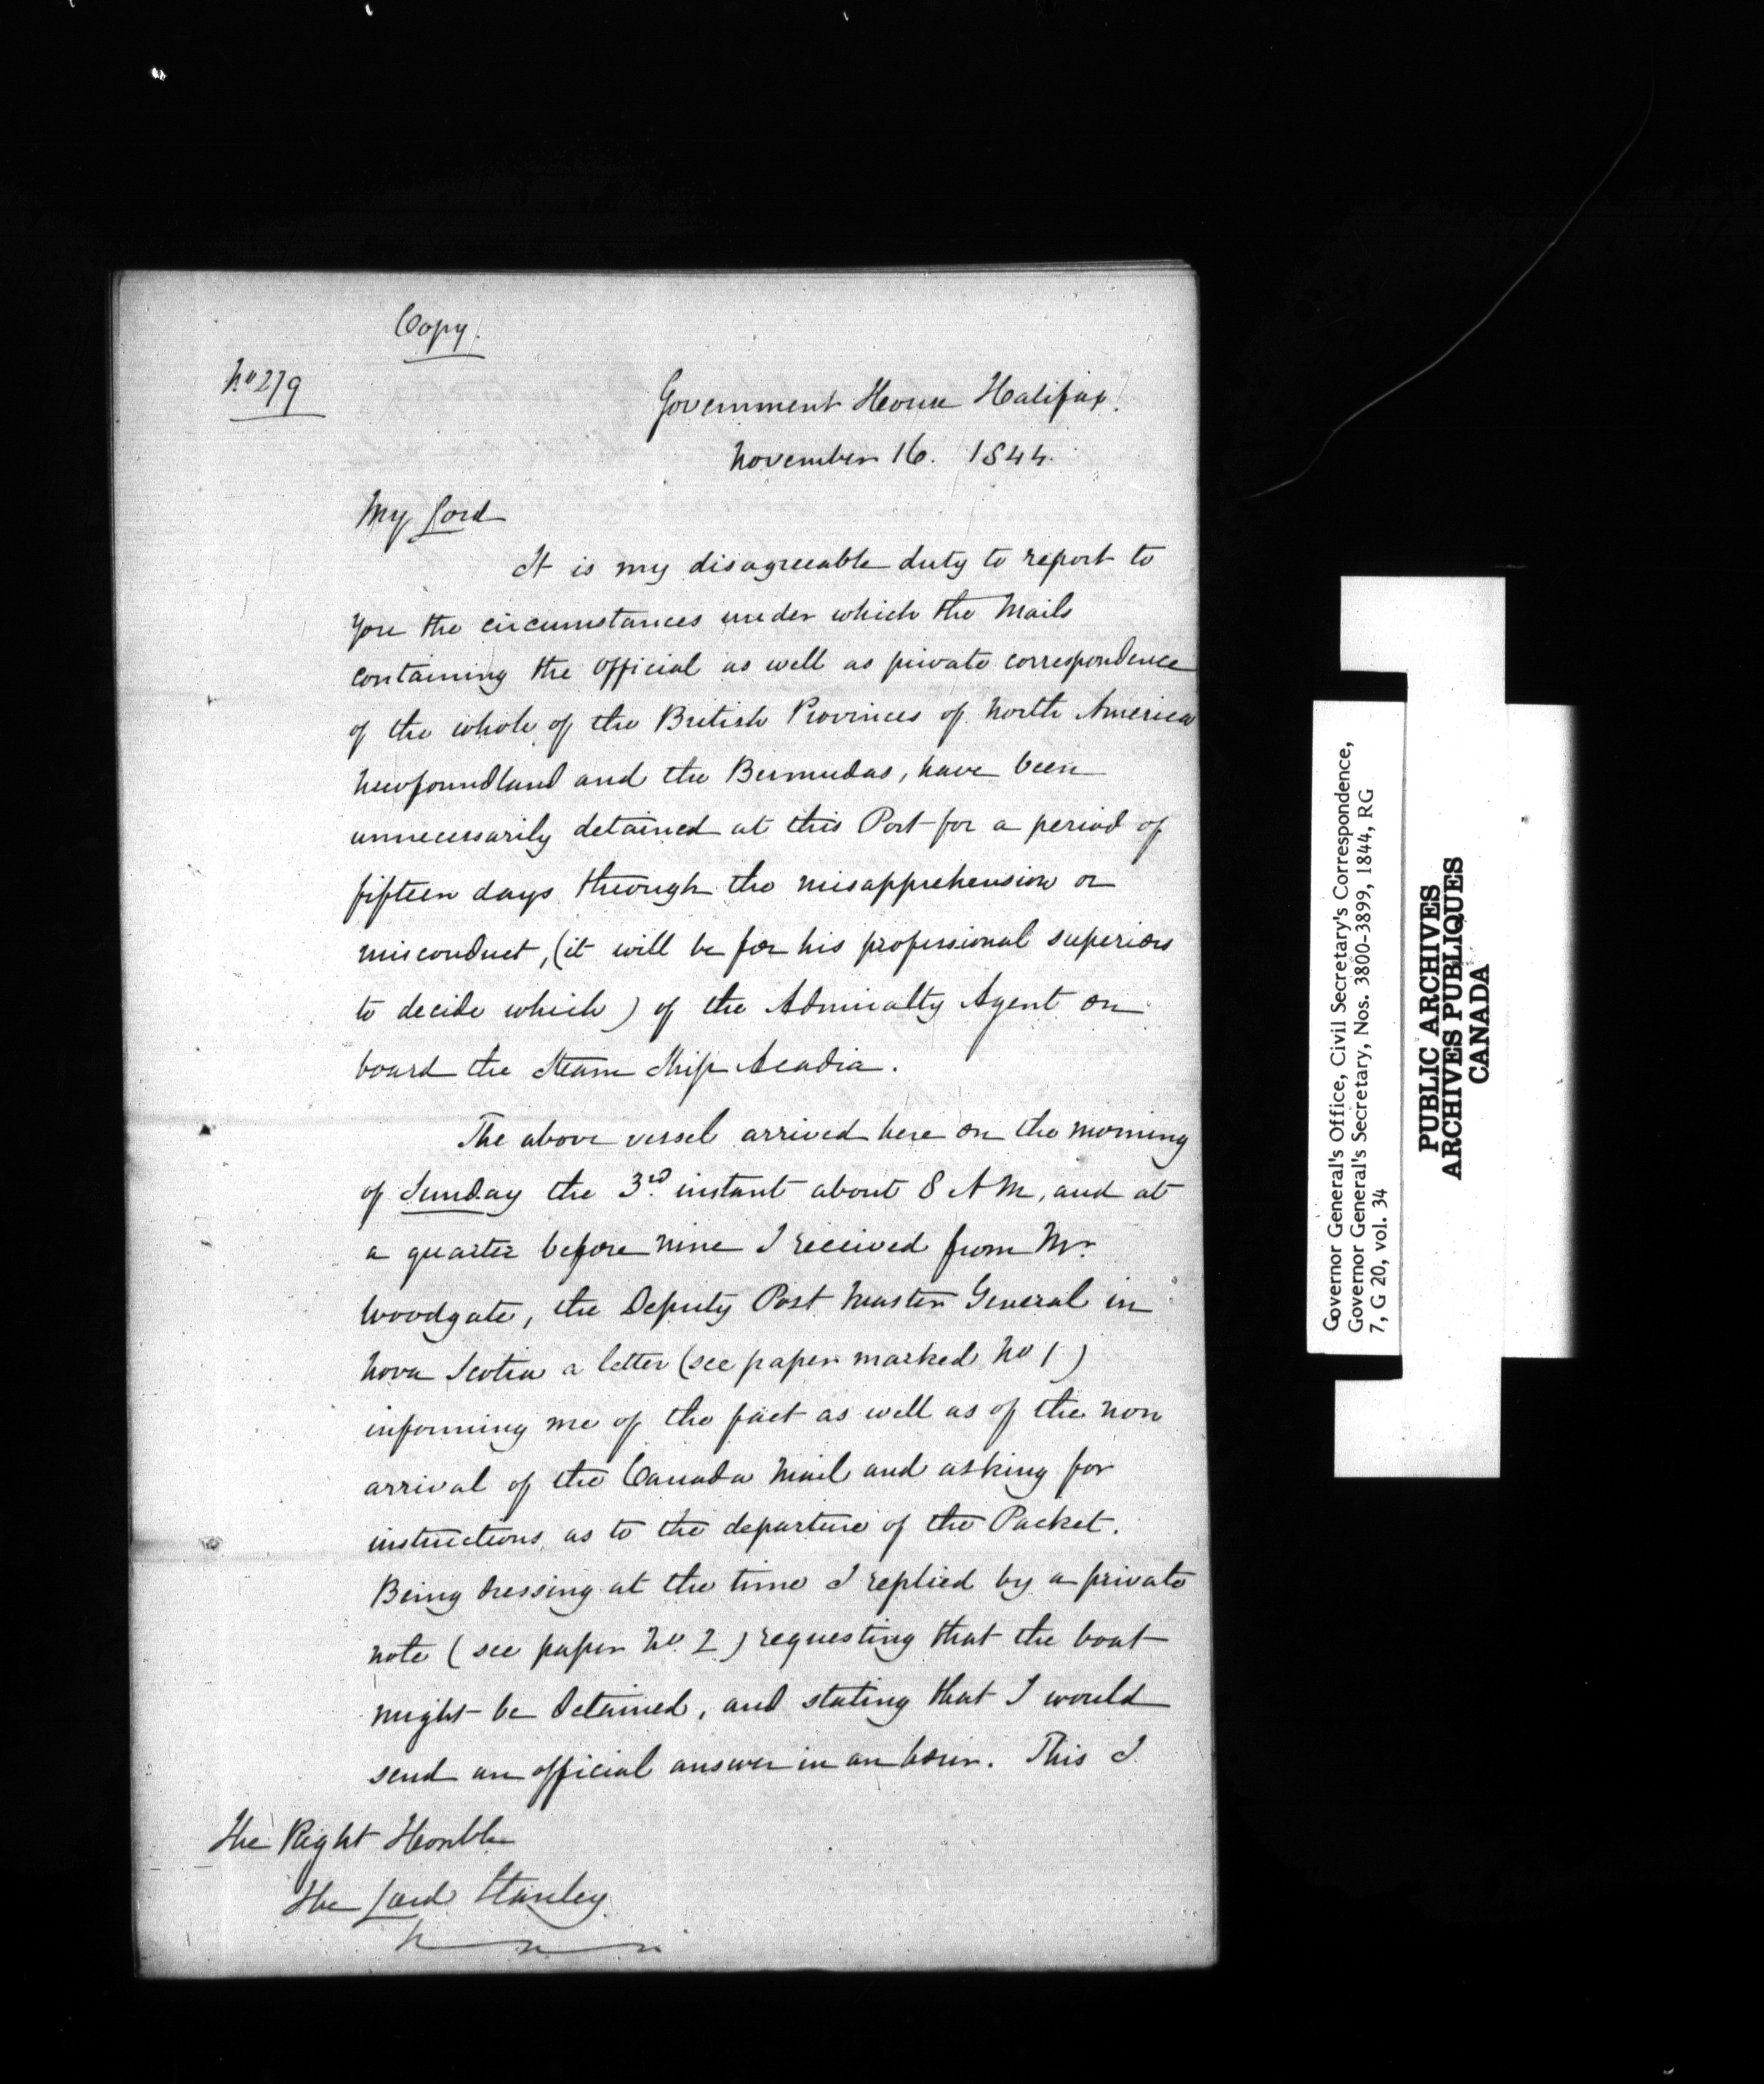 Copy.
No 279
Government House Halifax.
November 16. 1844.
My Lord
It is my disagreeable duty to report to
you the circumstances under which the Mails
containing the official as well as private correspondence
of the whole of the British Provinces of North America
Newfoundland and the Bermudas, have been
unnecessarily detained at this Port for a period of
fifteen days through the misapprehension or
misconduct, (it will be for his professional superiors
to decide which) of the Admiralty Agent on
board the Steam Ship Acadia.
The above vessel arrived here on the morning
of Sunday the 3rd instant about 8 A M, and at
a quarter before nine I received from Mr.
Woodgate, the Deputy Post Master General in
Nova Scotia a letter (see paper marked No 1)
informing me of the fact as well as of the non
arrival of the Canada Mail and asking for
instructions as to the departure of the Packet.
Being dressing at the time I replied by a private
note (see paper No. 2) requesting that the boat
might be detained, and stating that I would
send an official answer in an hour. This I
The Right Honble
The Lord Stanley
Governor General's Office, Civil Secretary's Correspondence,
Governor General's Secretary, Nos. 3800-3899, 1844, RG
7, G 20, vol. 34
PUBLIC ARCHIVES
ARCHIVES PUBLIQUES
CANADA